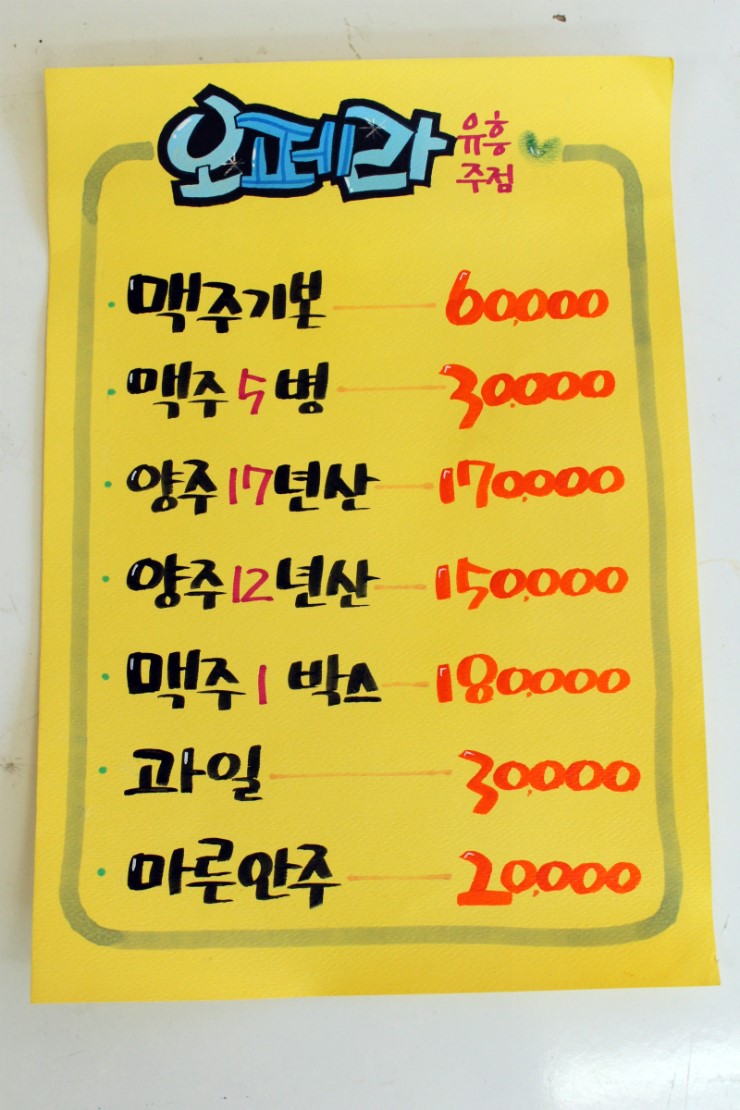 오페라 유흥
주점
맥주기본 60,000
맥주 5 병 30,000
양주 17년산 170,000
양주 12년산 150,000
맥주 1 박스 180,000
과일 30,000
마른안주 20,000